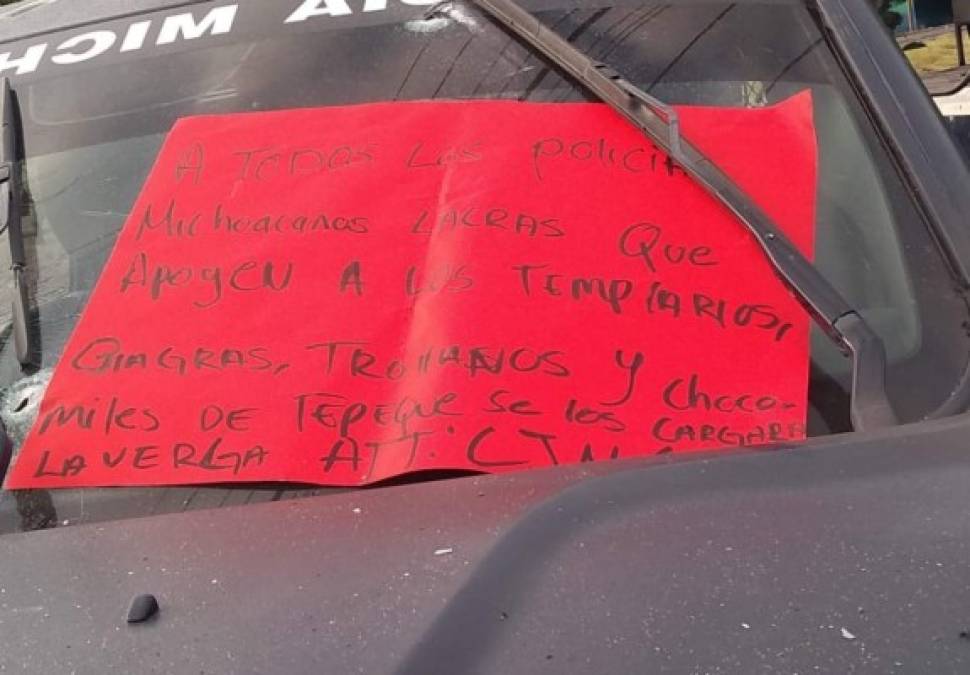 IA MICH
A TODOS LOS POLICIA
Michoacanos LACRAS Que
Apoyen A LOS TEMPLARIOS,
GIAGRAS, TROLLANOS y Choco-
miles DE TEPEQUE se los CARGARA
LA VERGA ATT: CJN